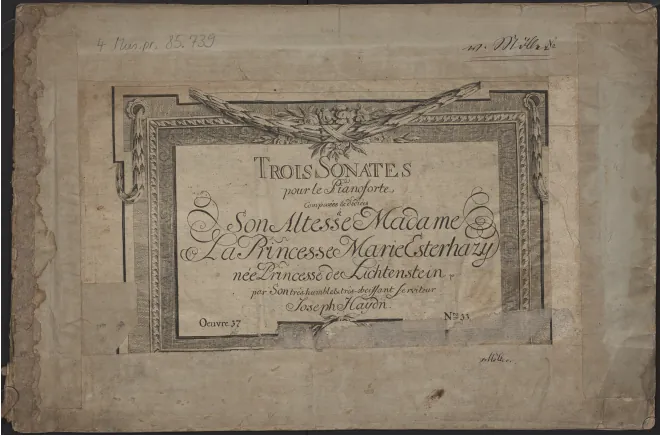 4 Mus.pr. 85.739
v. Möllers
TROIS SONATES
pour le Pianoforte
Composées & dediées
à
Son Altesse Madame
La Princesse Marie Esterhazy
née Princesse de Lichtenstein
par Son très humble & très obeissant serviteur
Joseph Haydn
Oeuvre 37
Nro 33